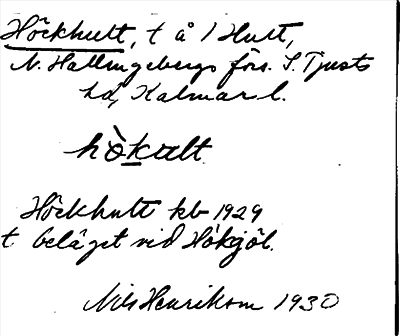 Höckhult, t å 1 Hult,
N. Hallingebergs förs. S. Tjusts
hd, Kalmar l.
hò̀kult
Höckhult kb 1929
t. beläget vid Hökgöl.
Nils Henrikson 1930